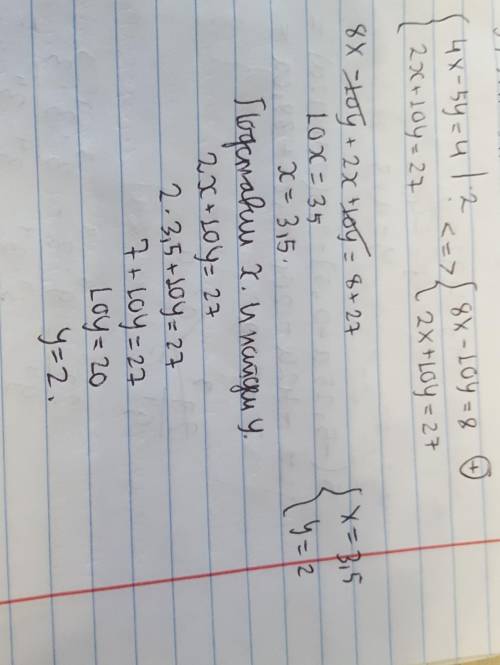 { 4x - 5y = 4 | · 2 <=> { 8x - 10y = 8 (+)
{ 2x + 10y = 27 { 2x + 10y = 27
8x - 10y + 2x + 10y = 8 + 27
10x = 35
x = 3,5.
{ x = 3,5
{ y = 2
Подставим x. и найдем y.
2x + 10y = 27
2 · 3,5 + 10y = 27
7 + 10y = 27
10y = 20
y = 2.